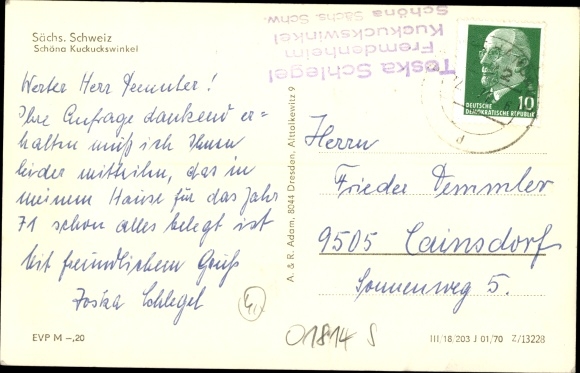 Sächs. Schweiz
Schöna Kuckuckswinkel
Werter Herr Demmler!
Ihre Anfrage dankend er=
halten muß ich Ihnen
leider mitteiln, das in
meinem Hause für das Jahr
71 schon alles belegt ist
Mit freundlichem Gruß
Toska Schlegel
EVP M –,20
A. & R. Adam, 8044 Dresden, Alttolkewitz 9
Toska Schlegel
Fremdenheim
Kuckuckswinkel
Schöna Sächs. Schw.
10
DEUTSCHE
DEMOKRATISCHE REPUBLIK
Herrn
Frieder Demmler
9505 Cainsdorf
Sonnenweg 5.
01814 S
III/18/203 J 01/70 Z/13228